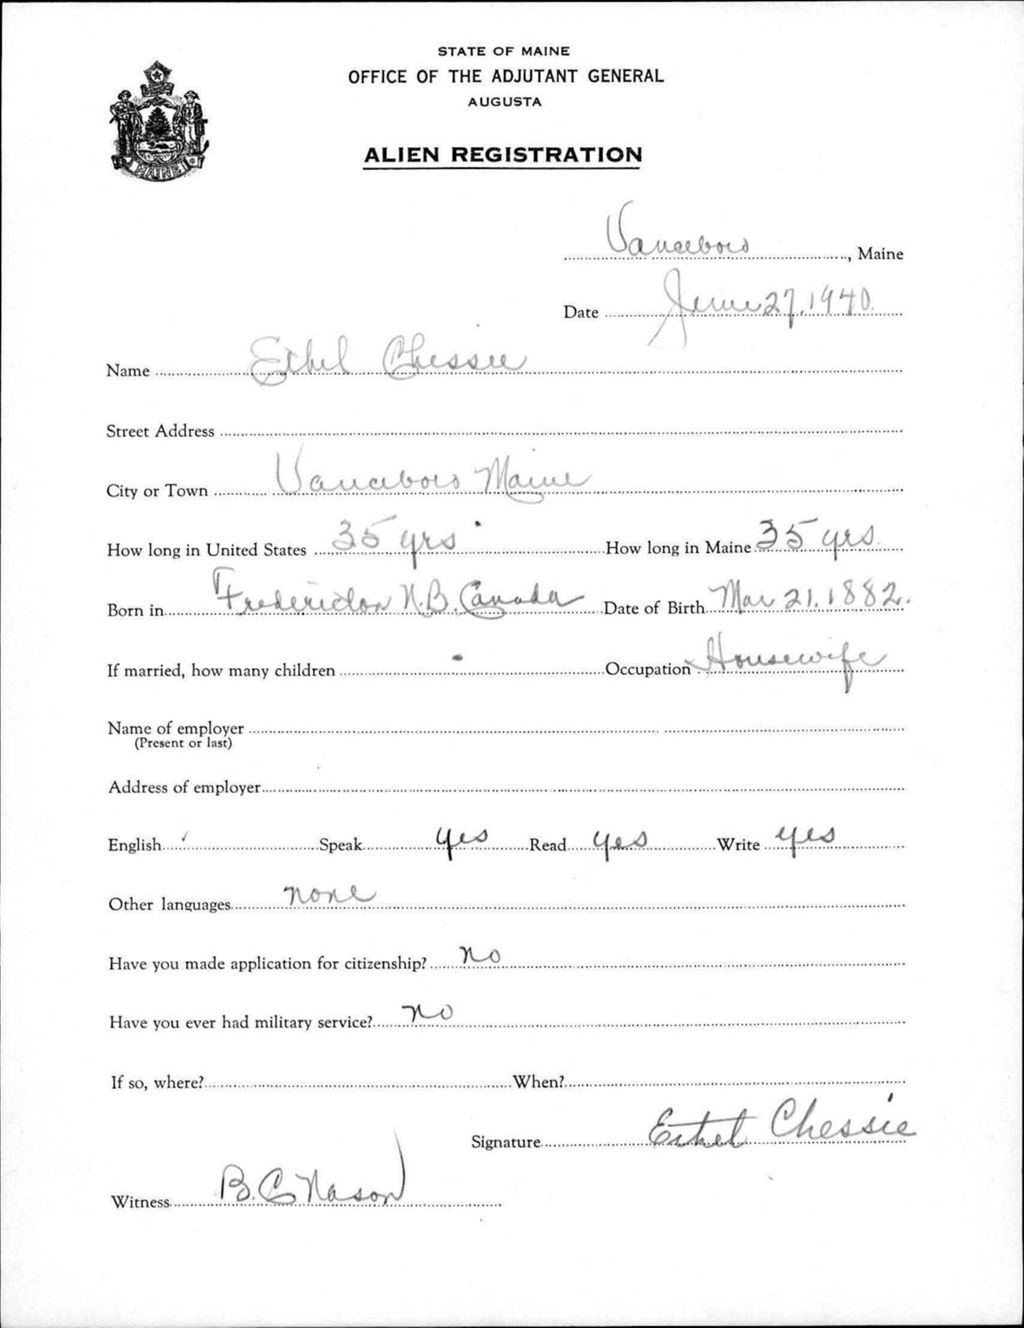 STATE OF MAINE
OFFICE OF THE ADJUTANT GENERAL
AUGUSTA
ALIEN REGISTRATION
MAINE
Vanceboro, Maine
Date June 27, 1940
Name Ethel Chessie
Street Address
City or Town Vanceboro Maine
How long in United States 35 yrs How long in Maine 35 yrs.
Born in Fredericton N.B. Canada Date of Birth Mar 21, 1882.
If married, how many children Occupation Housewife
Name of employer
(Present or last)
Address of employer
English Speak yes Read yes Write yes
Other languages none
Have you made application for citizenship? no
Have you ever had military service? no
If so, where? When?
Signature Ethel Chessie
Witness B. C. Nason